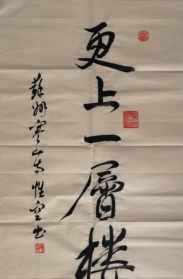 更上一層樓
蘇州寒山寺性空书